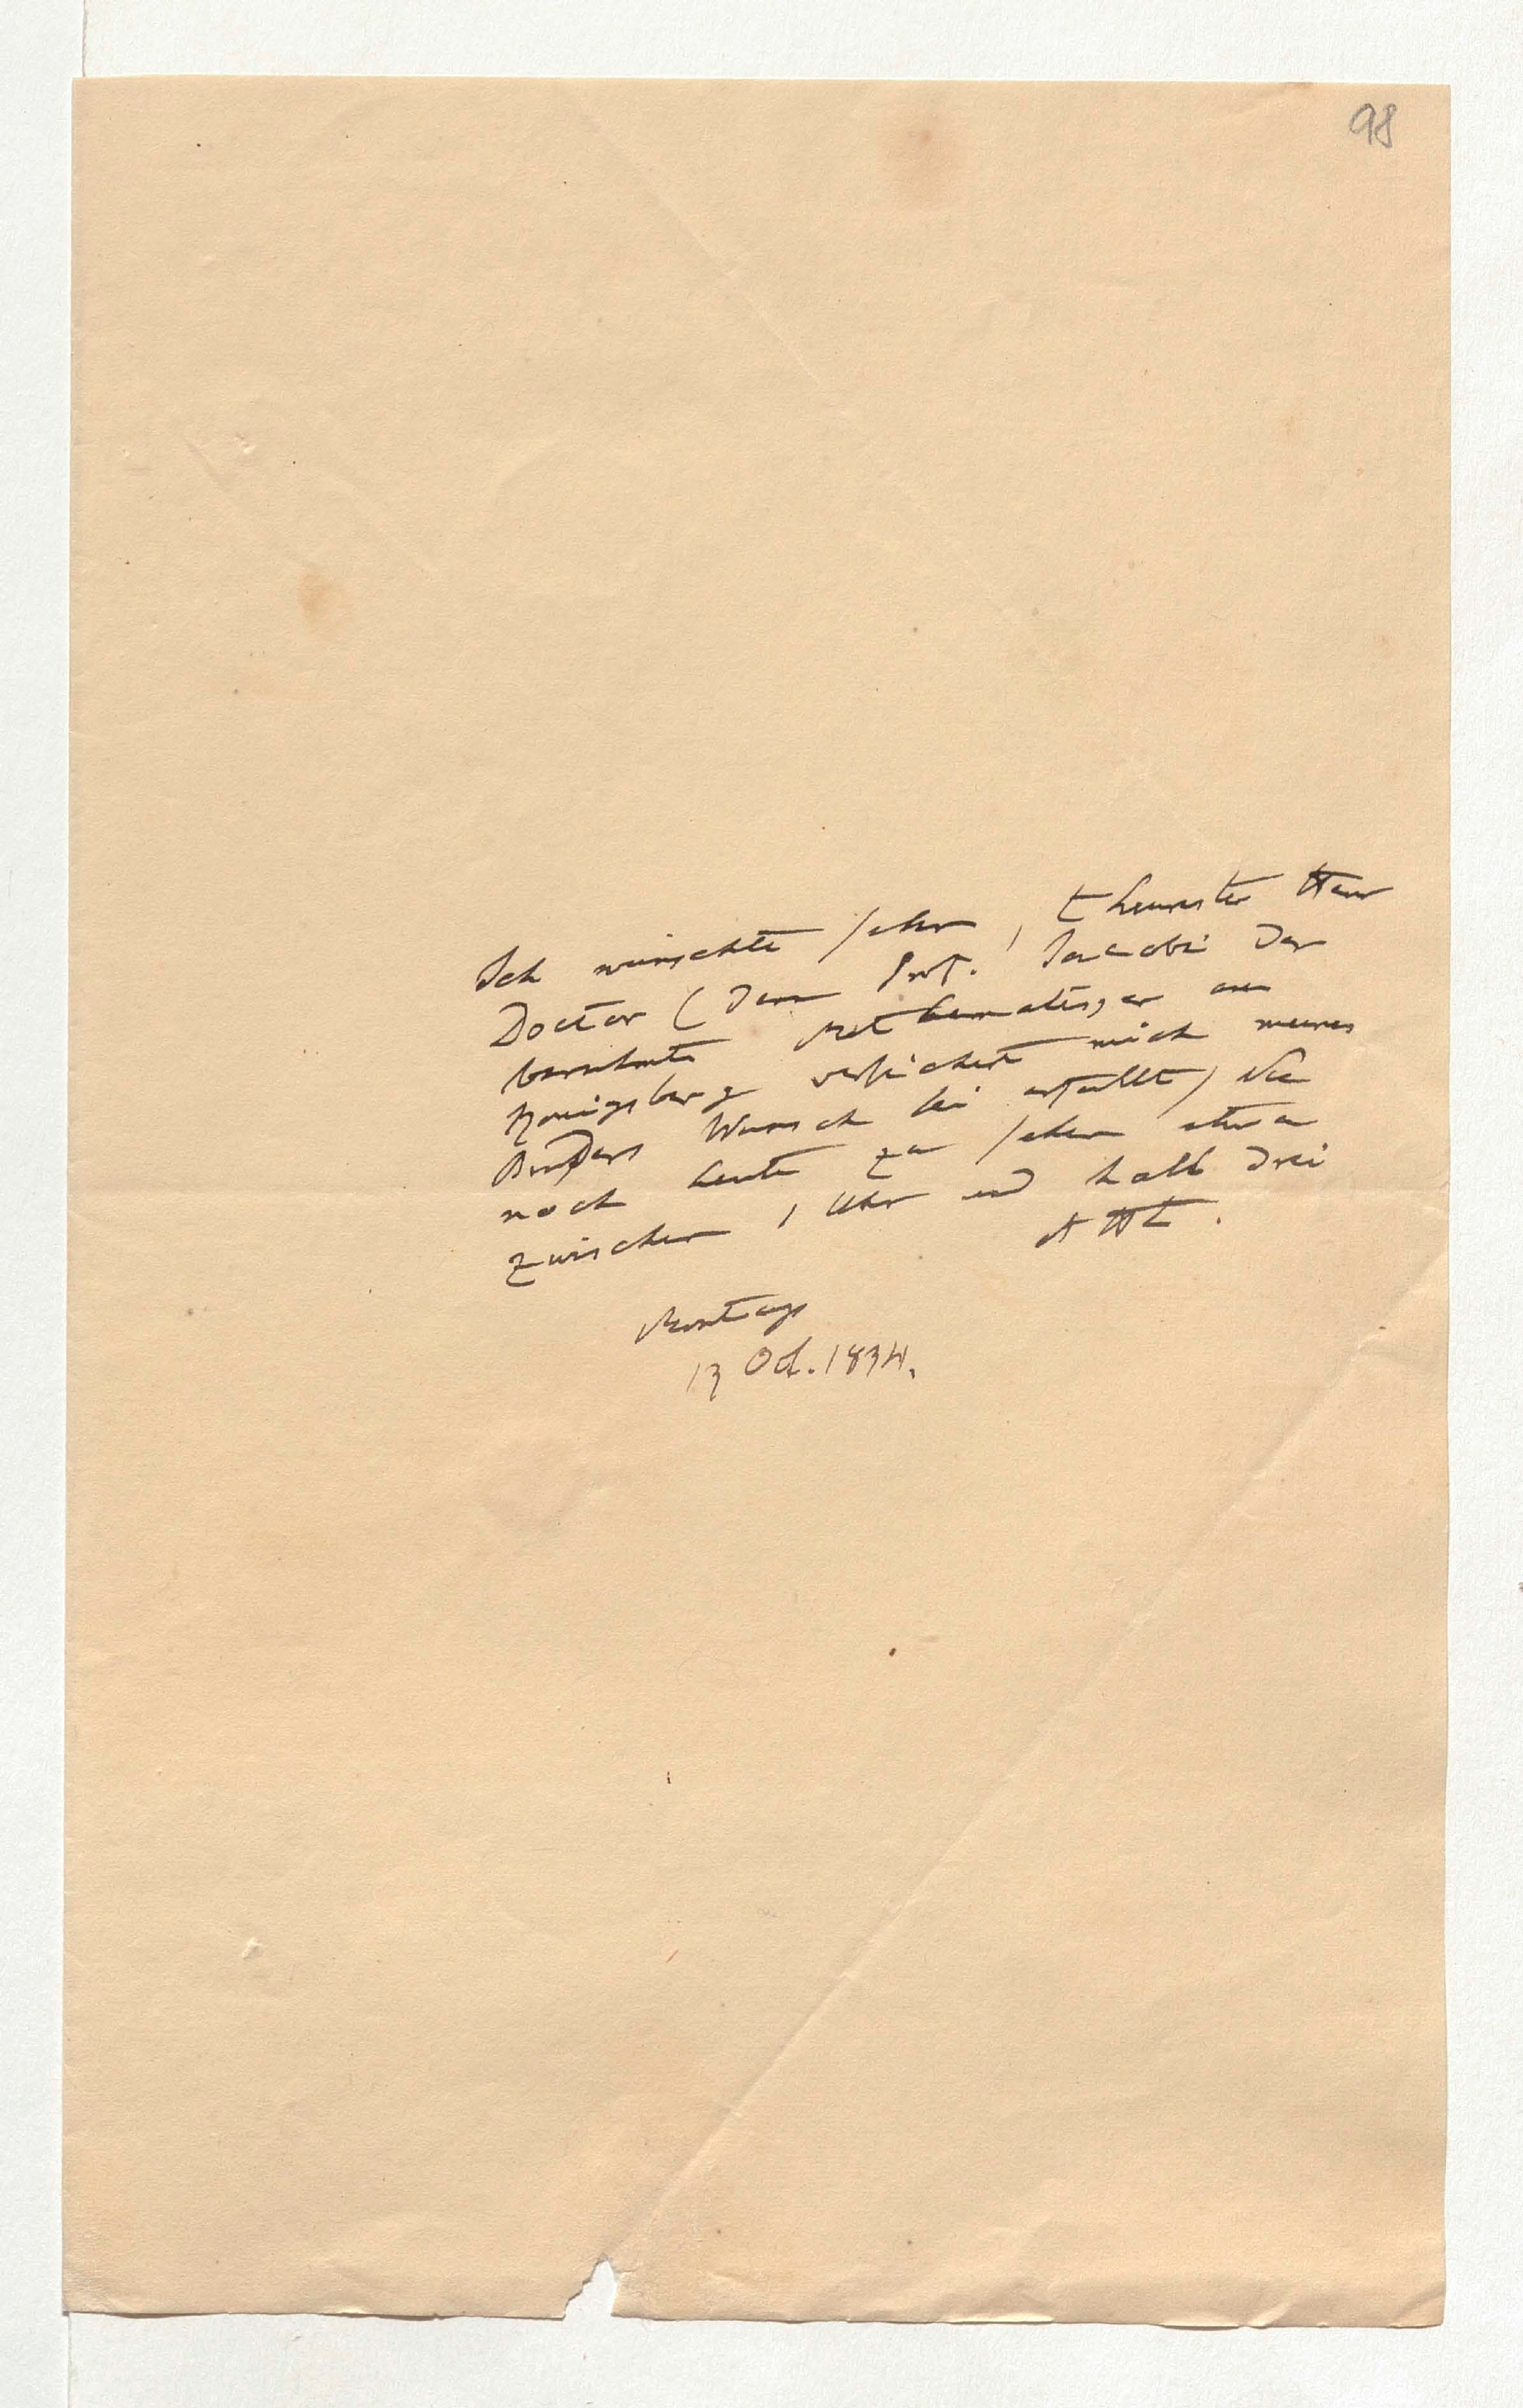 98
Ich wünschte sehr, theuerster Herr
Doctor (denn Prof. Jacobi der
berühmte Mathematiker aus
Königsberg versichert mich meines
Bruders Wunsch sei erfüllt) Sie
noch heute zu sehen etwa
zwischen 1 Uhr und halb drei
AHt.
Montags
13 Oct. 1834.